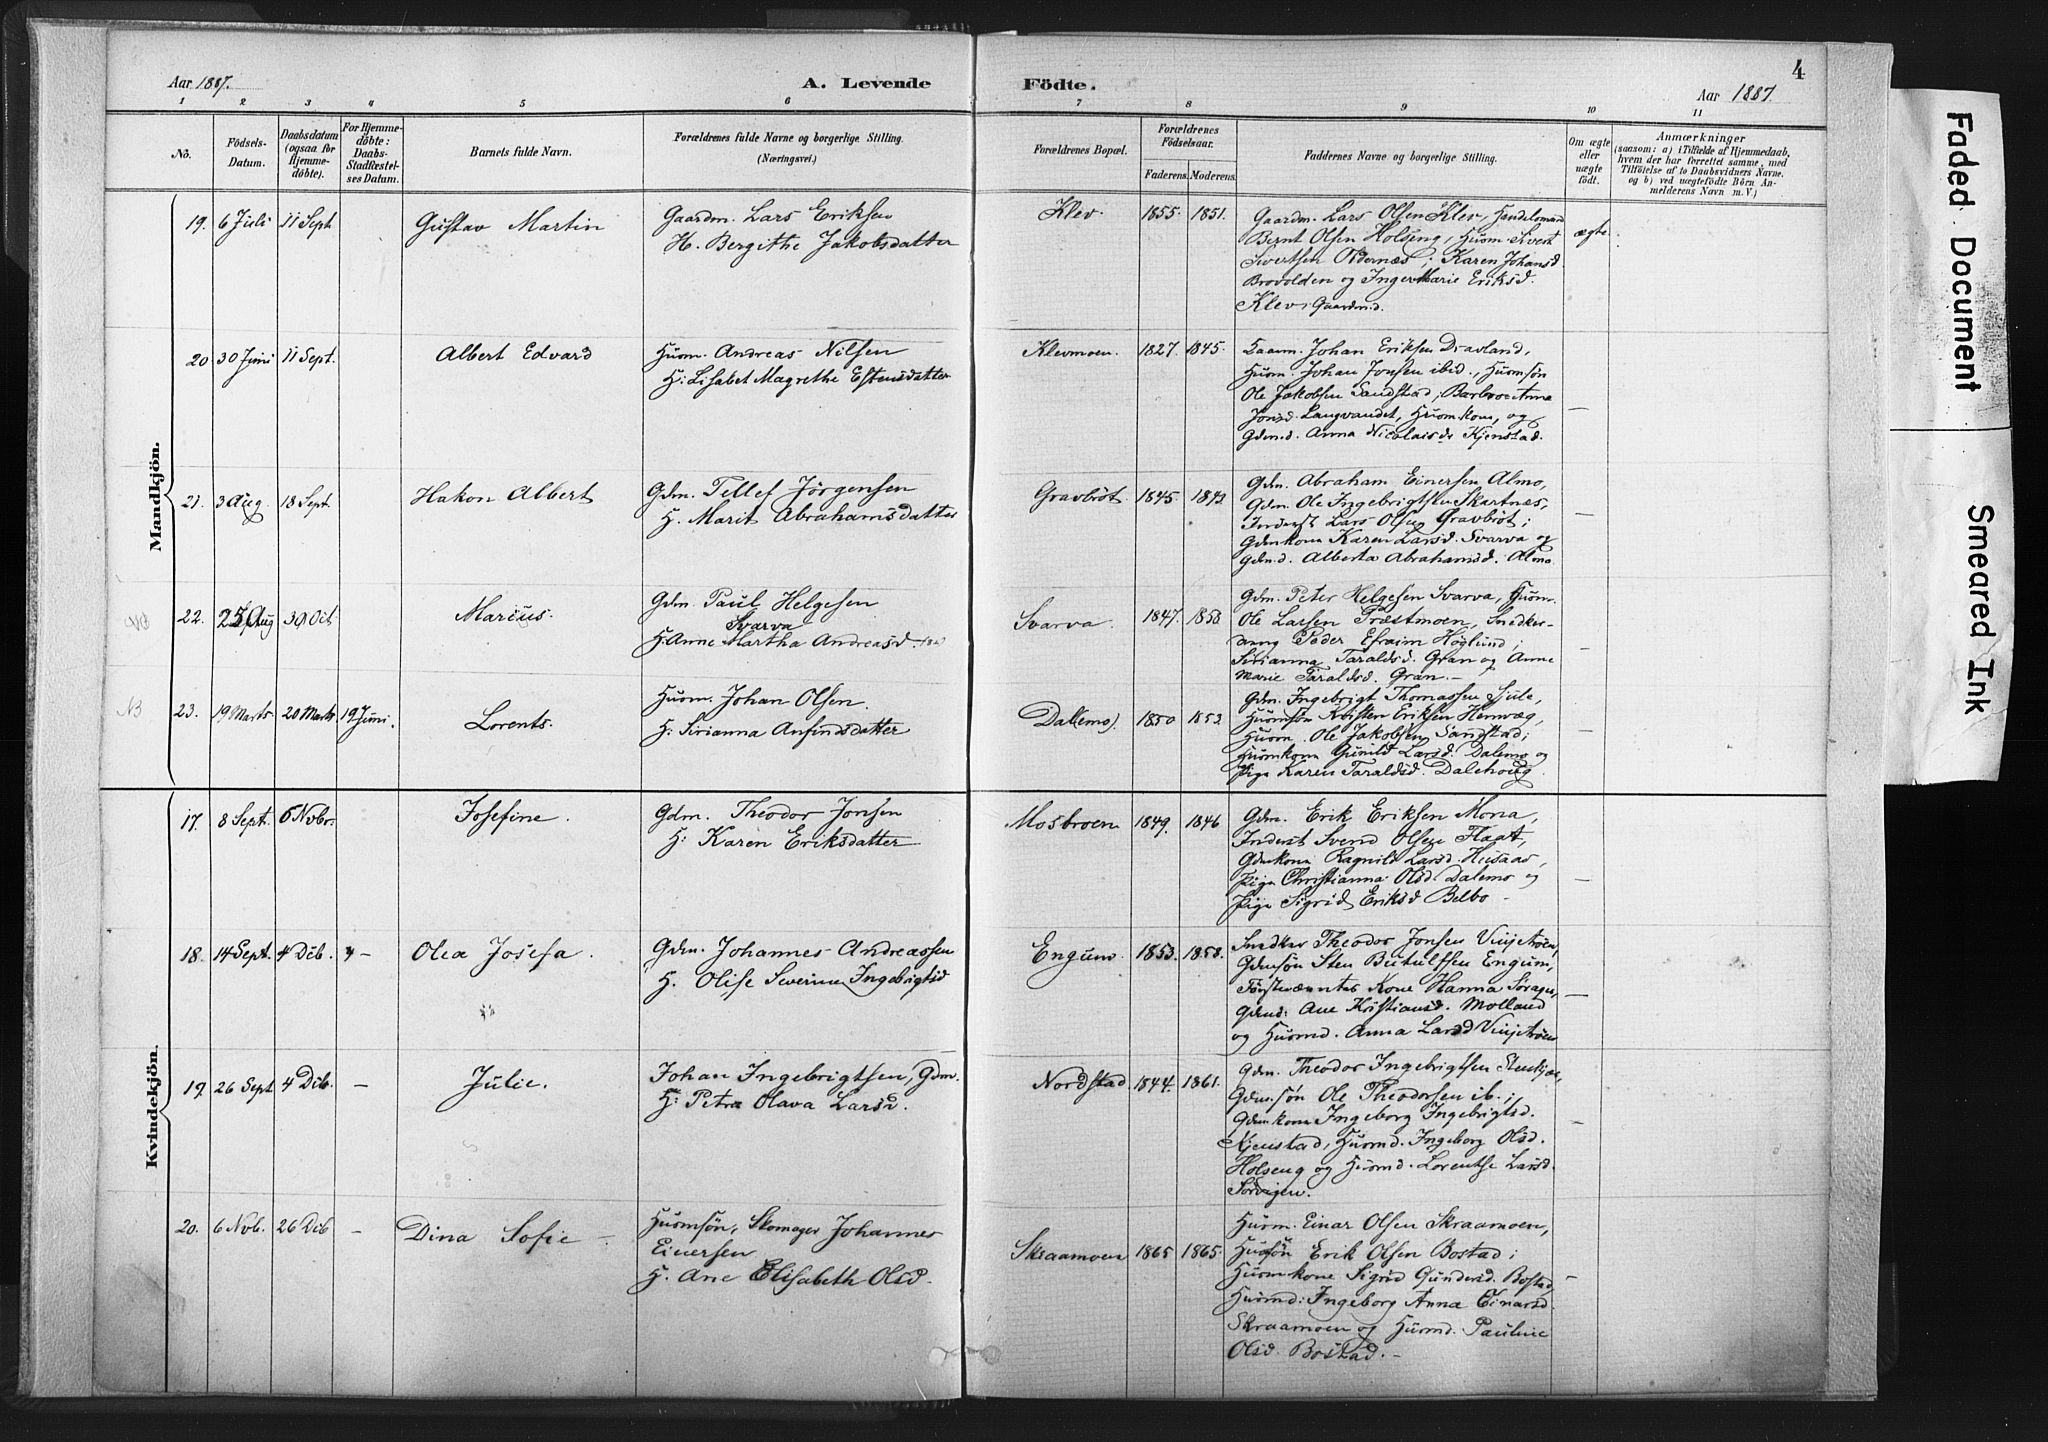 Aar 1887.
A. Levende
1 2 3 4 5 6
Nô.
Födsels-Datum.
Daabsdatum (ogsaa for Hjemme-döbte).
For Hjemme-döbte: Daabs-Stadfæstel-ses Datum.
Barnets fulde Navn.
Forældrenes fulde Navne og borgerlige Stilling. (Næringsvei.)
Mandkjön.
19. 6 Juli 11 Sept Gustav Martin Gaardm. Lars Eriksen
H. Bergithe Jakobsdatter
20 30 Juni 11 Sept. Albert Edvard Husm. Andreas Nilsen
H: Lisabet Magrethe Estensdatter
21. 3 Aug. 18 Sept. Hakon Albert Gdm. Tellef Jörgensen
H. Marit Abrahamsdatter
22. 25 Aug 30 Oct. Marius. Gdm. Paul Helgesen
Svarva
H. Anne Martha Andreasd.
NB 23. 19 Marts 20 Marts 19 Juni. Lorents. Husm. Johan Olsen
H: Sirianna Anfindsdatter
Kvindekjön.
17. 8 Sept. 6 Nvbr. Josefine. Gdm. Theodor Jonsen
H: Karen Eriksdatter
18. 14 Sept. 4 Dcb. – Olea Josefa. Gdm. Johannes Andreassen
H. Olise Severine Ingebrigtsd
19. 26 Sept 4 Dcb. – Julie. Johan Ingebrigtsen, Gdm.
H: Petra Olava Larsd.
20. 6 Nvb. 26 Dcb – Dina Sofie – Husmsön, Skomager Johannes
Einersen
H. Ane Elisabeth Olsd.
4
Födte.
Aar 1887
7 8 9 10 11
Forældrenes Bopæl.
Forældrenes Födselsaar.
Faderens. Moderens.
Faddernes Navne og borgerlige Stilling.
Om ægte eller uægte födt.
Anmærkninger
(saasom: a) i Tilfælde af Hjemmedaab,
hvem der har forrettet samme, med
Tilföielse af to Daabsvidners Navne.
og b) ved uægtefödte Börn An-
melderens Navn m. V.)
Klev. 1855. 1851. Gaardm. Lars Olsen Klev, Handelsmand
Bernt Olsen Holseng, Husm. Sivert ægte
Sivertsen Oldernæs; Karen Johansd.
Brovolden og Inger Marie Eriksd.
Klev, Gaardmd.
Klevmoen. 1827. 1845. Gaarm. Johan Eriksen Dravland,
Husm. Johan Jonsen ibid., Husmsön
Ole Jakobsen Sandstad; Barbroe Anna
Jonsd. Langvandet, Husmkone, og
Gdmd. Anna Nicolaisd. Kjenstad. –
Gravbröt. 1845. Gdm. Abraham Einersen Almo,
Gdm. Ole Ingebrigtsen Skartnæs,
Inderst Lars Olsen Gravbröt; –
Gdmkone Karen Larsd. Svarva og
Gdmd. Alberta Abrahamsd. Almo
Svarva. 1847. 1858 Gdm. Peter Helgesen Svarva, Husm.
Ole Larsen Præstmoen, Snedker-
Peder Efraim Höglund; –
Sirianna Taraldsd. Gran og Anne
Marie Taraldsd. Gran. –
Dalemo. 1850 1853. Gdm. Ingebrigt Thomassen Sjule,
Husmsön Kristen Eriksen Hemvæg,
Husm. Ole Jakobsen Sandstad; –
Husmkone Gunild Larsd. Dalemo og
Pige Karen Taraldsd. Dalehoug.
Mosbroen 1849. 1846 Gdm. Erik Eriksen Mona,
Inderst Svend Olsen Flaat,
Gdmkone Ragnild Larsd. Husaas,
Pige Christianna Olsd. Dalemo og –
Pige Sigrid Eriksd Belbo –
Engum. 1853. 1858. Snedker Theodor Jonsen
Gdmsön Sten Beitulfsen Engum,
Kone Hanna –
Gdmd: Ane Kristiansd. Molland
og Husmd. Anna Larsd
Nordstad 1844. 1861. Gdm. Theodor Ingebrigtsen
Gdmsön Ole Theodorsen ib.;
Gdmkone Ingeborg Ingebrigtsd.
Kjenstad, Husmd. Ingeborg Olsd. –
Holseng og Husmd. Lorentse Larsd.
Sörvigen.
Skraamoen 1865 1865. Husm. Einar Olsen Skraamoen,
Husmsön Erik Olsen Bostad;
Husmkone Sigrid Gundersd. Bostad, –
Husmd: Ingeborg Anna Einarsd.
Skraamoen og Husmd. Pauline
Olsd. Bostad. –
Faded Document
Smeared Ink